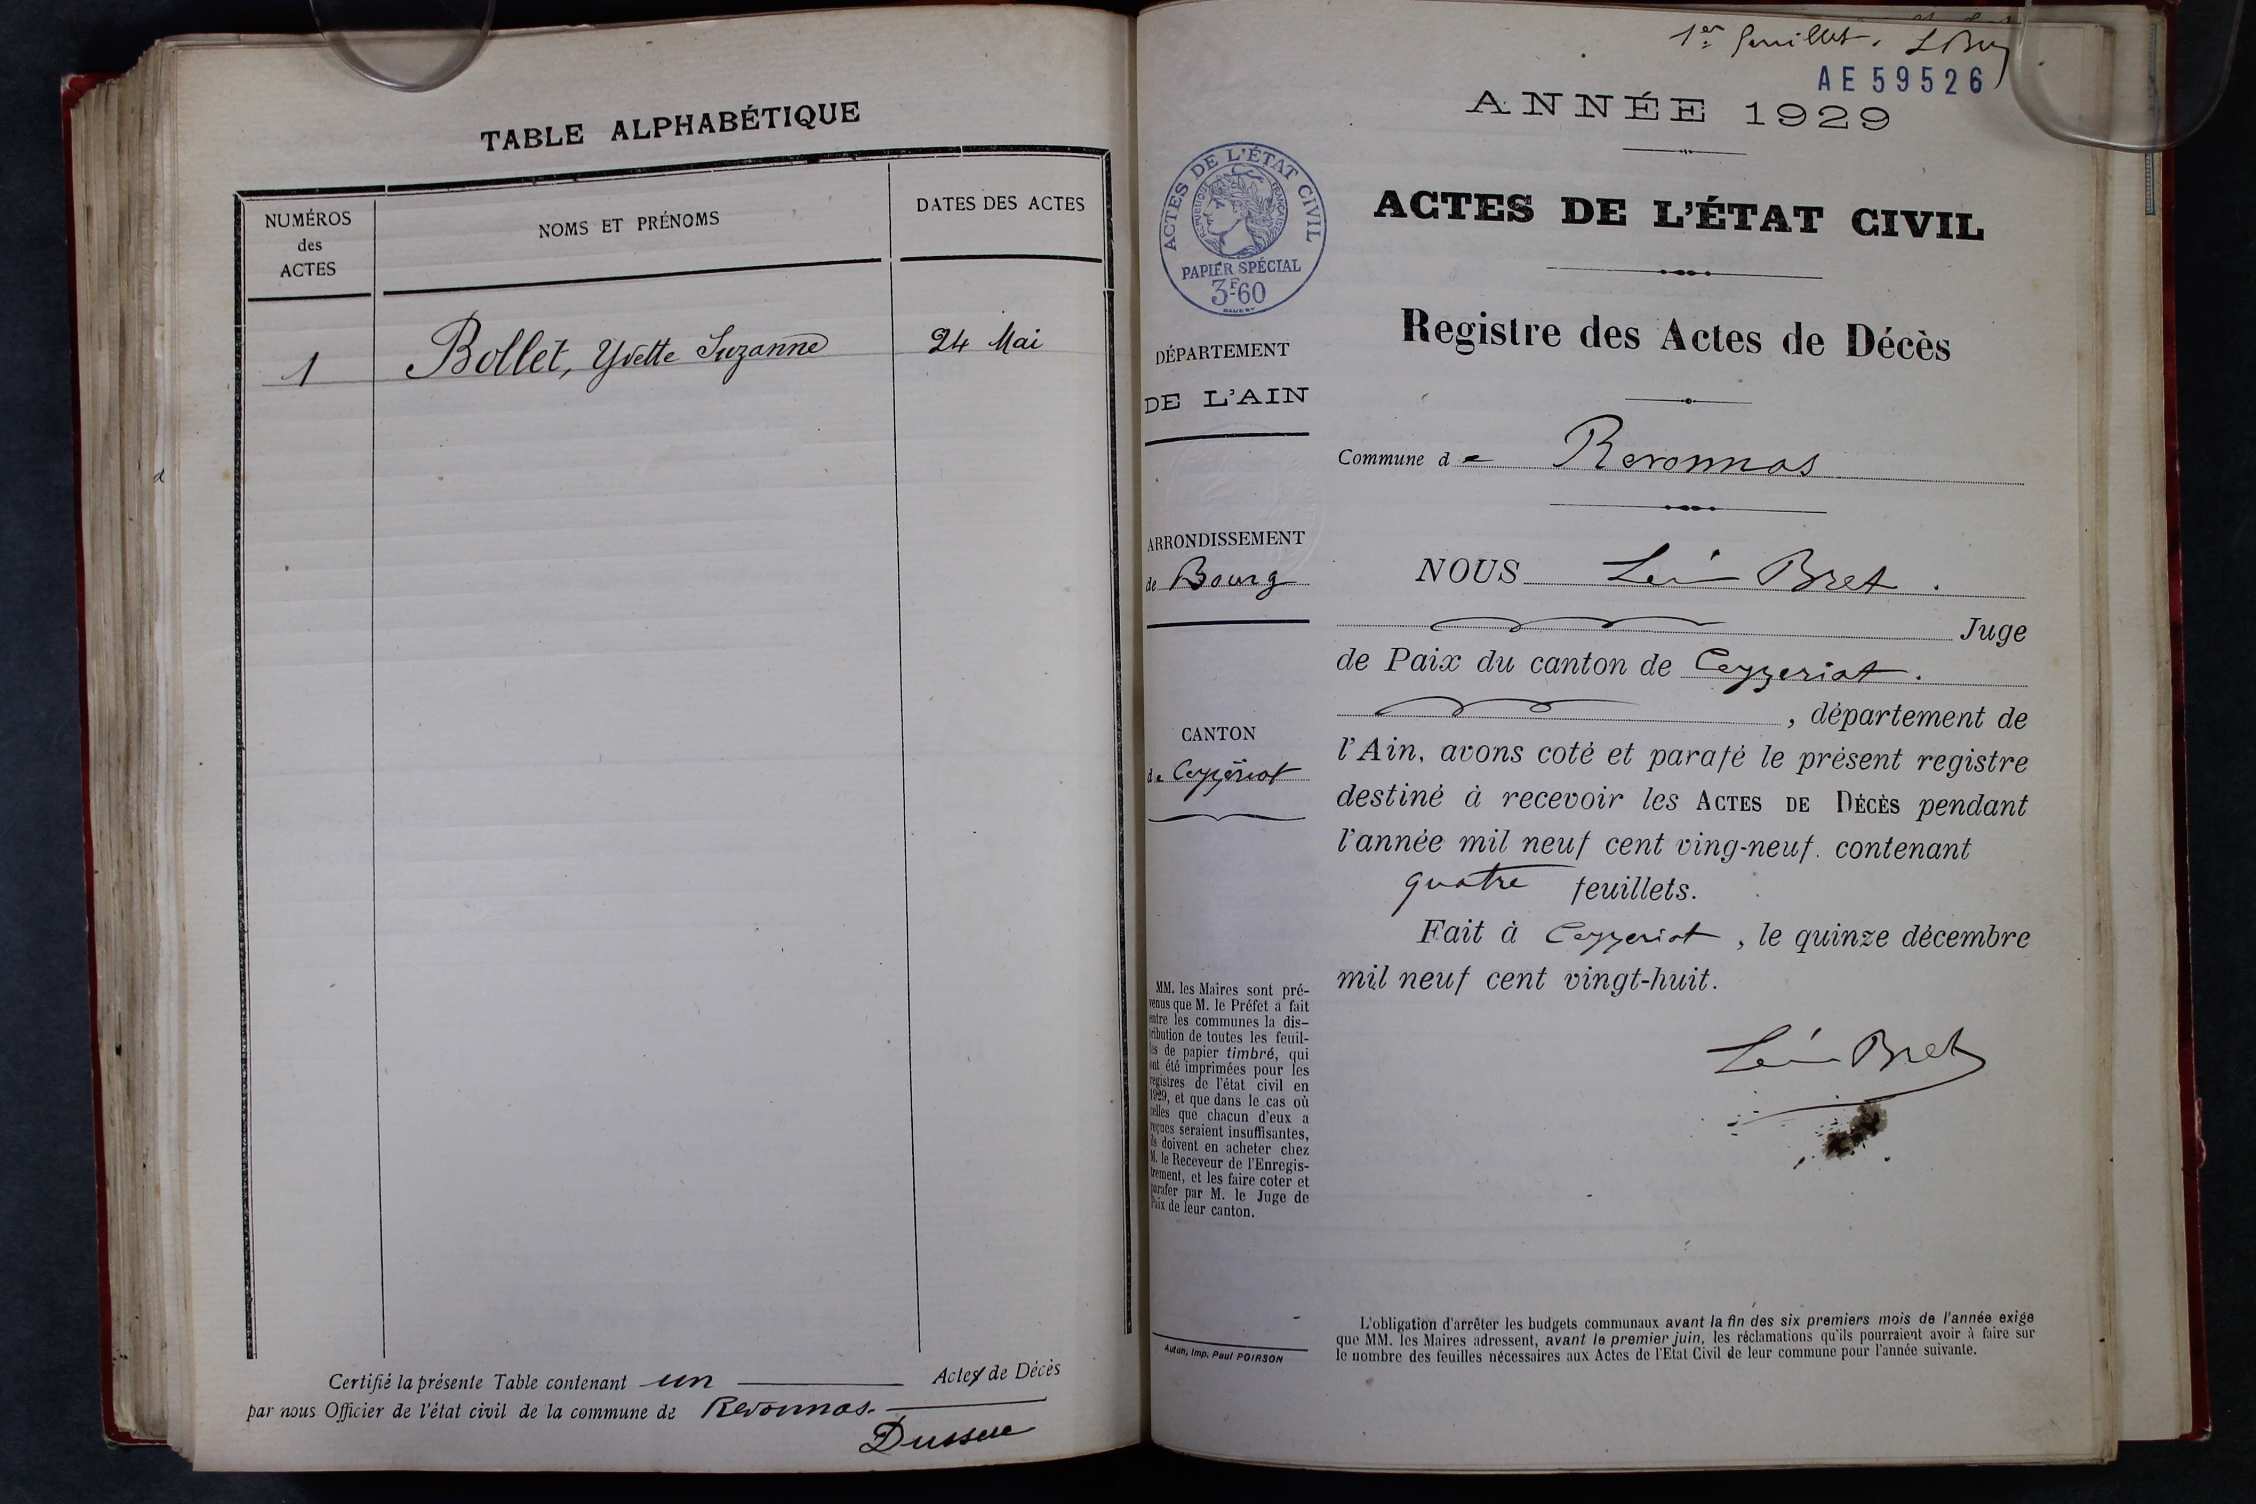 TABLE ALPHABÉTIQUE
NUMÉROS
des
ACTES
NOMS ET PRÉNOMS
DATES DES ACTES
1
Bollet, Yvette Suzanne
24 Mai
Certifié la présente Table contenant un Actes de Décès
par nous Officier de l'état civil de la commune de Revonnas.
1er feuillet.
AE 59526
ANNÉE 1929
ACTES DE L'ÉTAT CIVIL
RÉPUBLIQUE FRANÇAISE
PAPIER SPÉCIAL
3F60
ACTES DE L'ÉTAT CIVIL
Registre des Actes de Décès
DÉPARTEMENT
DE L'AIN
Commune de Revonnas
ARRONDISSEMENT
de Bourg
CANTON
de Ceyzériat
NOUS Léon Bret.
Juge
de Paix du canton de Ceyzeriat.
, département de
l'Ain, avons coté et parafé le présent registre
destiné à recevoir les ACTES DE DÉCÈS pendant
l'année mil neuf cent ving-neuf. contenant
quatre feuillets.
Fait à Ceyzeriat, le quinze décembre
mil neuf cent vingt-huit.
Léon Bret
MM. les Maires sont pré-
venus que M. le Préfet a fait
entre les communes la dis-
tribution de toutes les feuil-
les de papier timbré, qui
ont été imprimées pour les
registres de l'état civil en
1929, et que dans le cas où
celles que chacun d'eux a
reçues seraient insuffisantes,
ils doivent en acheter chez
M. le Receveur de l'Enregis-
trement, et les faire coter et
parafer par M. le Juge de
Paix de leur canton.
Autun, Imp. Paul POIRSON
L'obligation d'arrêter les budgets communaux avant la fin des six premiers mois de l'année exige
que MM. les Maires adressent, avant le premier juin, les réclamations qu'ils pourraient avoir à faire sur
le nombre des feuilles nécessaires aux Actes de l'Etat Civil de leur commune pour l'année suivante.